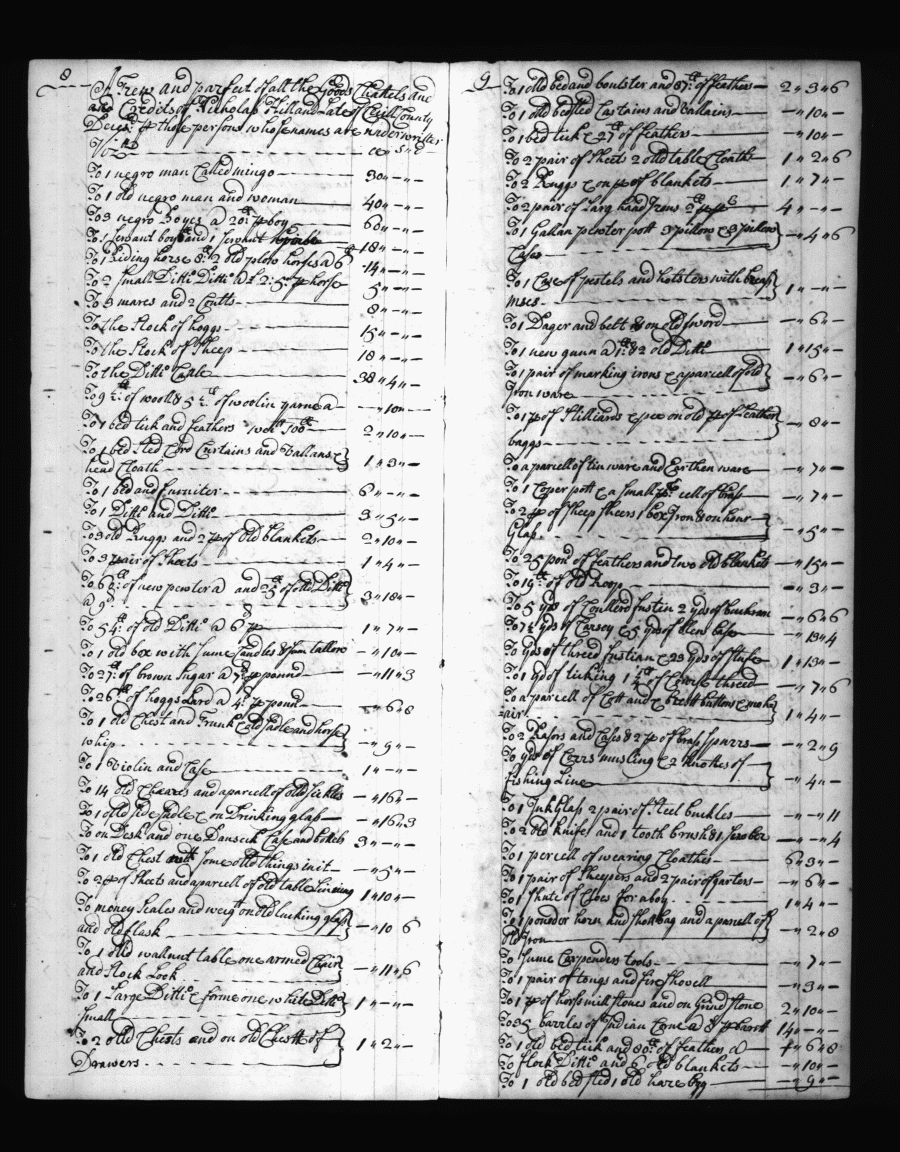 8
A Trew and parfect of all the Goods Chattels and
and Credits of Nicholas Hiland Late of Cecill County
Deces: those persons whose names are underwritten
Vizt
To 1 negro man Called mingo 30 " - " -
To 1 old negro man and woman 40 " - " -
To 3 negro Boyes a 20£ p boy 60 " - " -
To 1 Servant boy and 1 Servant 18 " - " -
To 1 Riding horse & 2 old plow horses a 6£ 14 " - " -
To 2 Small Ditto Ditto a 2:5 p horse 5 " - " -
To 3 mares and 2 Coults 8 " - " -
To the Stock of hoggs 15 " - " -
To the Stock of Sheep 18 " - " -
To the Ditto Catle 38 " 4 " -
To 9 lb: of wooll & 5 lb of woolin yarne a - " 10 " -
To 1 bed tick and feathers wch 100 lb 2 " 10 " -
To 1 bed Sted Cord Curtains and Vallans &
head Cloath 1 " 3 " -
To 1 bed and furniter 6 " - " -
To 1 Ditto and Ditto 3 " 5 " -
To 3 old Ruggs and 2 p of Old blankets 2 " 10 " -
To 3 pair of Sheets 1 " 4 " -
To of new pewter a and 25 lb of old Ditto
a 9d 3 " 18 " -
To 54 lb: of old Ditto a 6 p 1 " 7 " -
To 1 old box with Sume Candles & Sum tallow - " 10 " -
To 27 lb: of brown Sugar a p pound - " 11 " 3
To 26 lb of hoggs Lard a 4d p pound - " 6 " 8
To 1 old Chest and Trunk & Sadle and horse
whip - " 9 " -
To 1 Violin and Case 1 " - " -
To 14 old Chaares and a parcell of old Sickles - " 16 " -
To 1 old Side Sadle & on Drinking glass - " 16 " 3
To on Desk and one Dansick Case and botels 3 " - " -
To 1 old Chest with Some old things in it - " 5 " -
To 2 p of Sheets and a parcell of old table Linning 1 " 10 " -
To money Scales and weigts on old lucking glass
and old flask - " 10 " 6
To 1 old wallnut table one armed Chair
and Stock Lock - " 11 " 6
To 1 Large Ditto & forme one white Ditto
Small 1 " - " -
To 2 old Chests and on old Chestt of
Drawers 1 " 2 " -
9
To 1 old bed and boulster and 87 lb of feathers 2 " 3 " 6
To 1 old bedsted Curtains and Vallains - " 10 " -
To 1 bed tick & 27 lb of feathers - " 10 " -
To 2 pair of Sheets 2 old table Cloaths 1 " 2 " 6
To 2 Ruggs & on p of blankets 1 " 7 " -
To 2 pair of Larg hand Irons 4 " - " -
To 1 Gallan pewter pott 3 pillows & 3 pillow
Cases - " 4 " 6
To 1 Case of pestels and holsters with
1 " - " -
To 1 Dager and belt & on old Sword - " 6 " -
To 1 new gunn a & 2 old Ditto 1 " 15 " -
To 1 pair of marking irons & a parcell of old
Iron ware - " 6 " -
To 1 p of Stilliards & on old p of Leather
baggs - " 8 " -
To a parcell of tin ware and Earthen ware - " 7 " -
To 1 Coper pott & a Small parcell of brass - " 7 " -
To 2 p of Sheep Sheers 1 box Iron & on hour
Glass - " 5 " -
To 25 pond of feathers and two old blankets - " 15 " -
To 19 lb of old Roop - " 3 " -
To 5 yds of Coullerd fustin 2 yds of buckram - " 6 " 6
To yds of Carsey & 5 yds of - " 13 " 4
To yds of threed fustian & 23 yds of Stufe 1 " 13 " -
To 1 yd of ticking 1 lb of Corse threed - " 7 " 6
To a parcell of Cott and & brest buttons & mohe
air 1 " 4 " -
To 2 Rasors and Case & 2 p of brass Spurrs - " 2 " 9
To yds of musling & 2 knottes of
fishing Line - " 4 " -
To 1 Ink Glass 2 pair of Steel buckles - " - " 11
To 2 old knifes and 1 tooth brush & 1 - " - " 4
To 1 percell of wearing Cloathes 6 " 3 " -
To 1 pair of Sleepers and 2 pair of garters - " 6 " -
To 1 Shute of Cloes for a boy 1 " 4 " -
To 1 pouder horn and Shot bag and a parcell of
old Iron - " 2 " 8
To Sume Carpenders tools - " 7 " -
To 1 pair of tongs and fire Shovell - " 3 " -
To 1 p of horse mill Stones and on Grind Stone 2 " 10 " -
To 35 barrles of Indian Corne a 8 p barell 14 " - " -
To 1 old bed tick and 80 lb: of feathers a 4 " 6 " 8
To flock Ditto and 6 old blankets - " 10 " -
To 1 old bed sted 1 old hare - " 9 " -